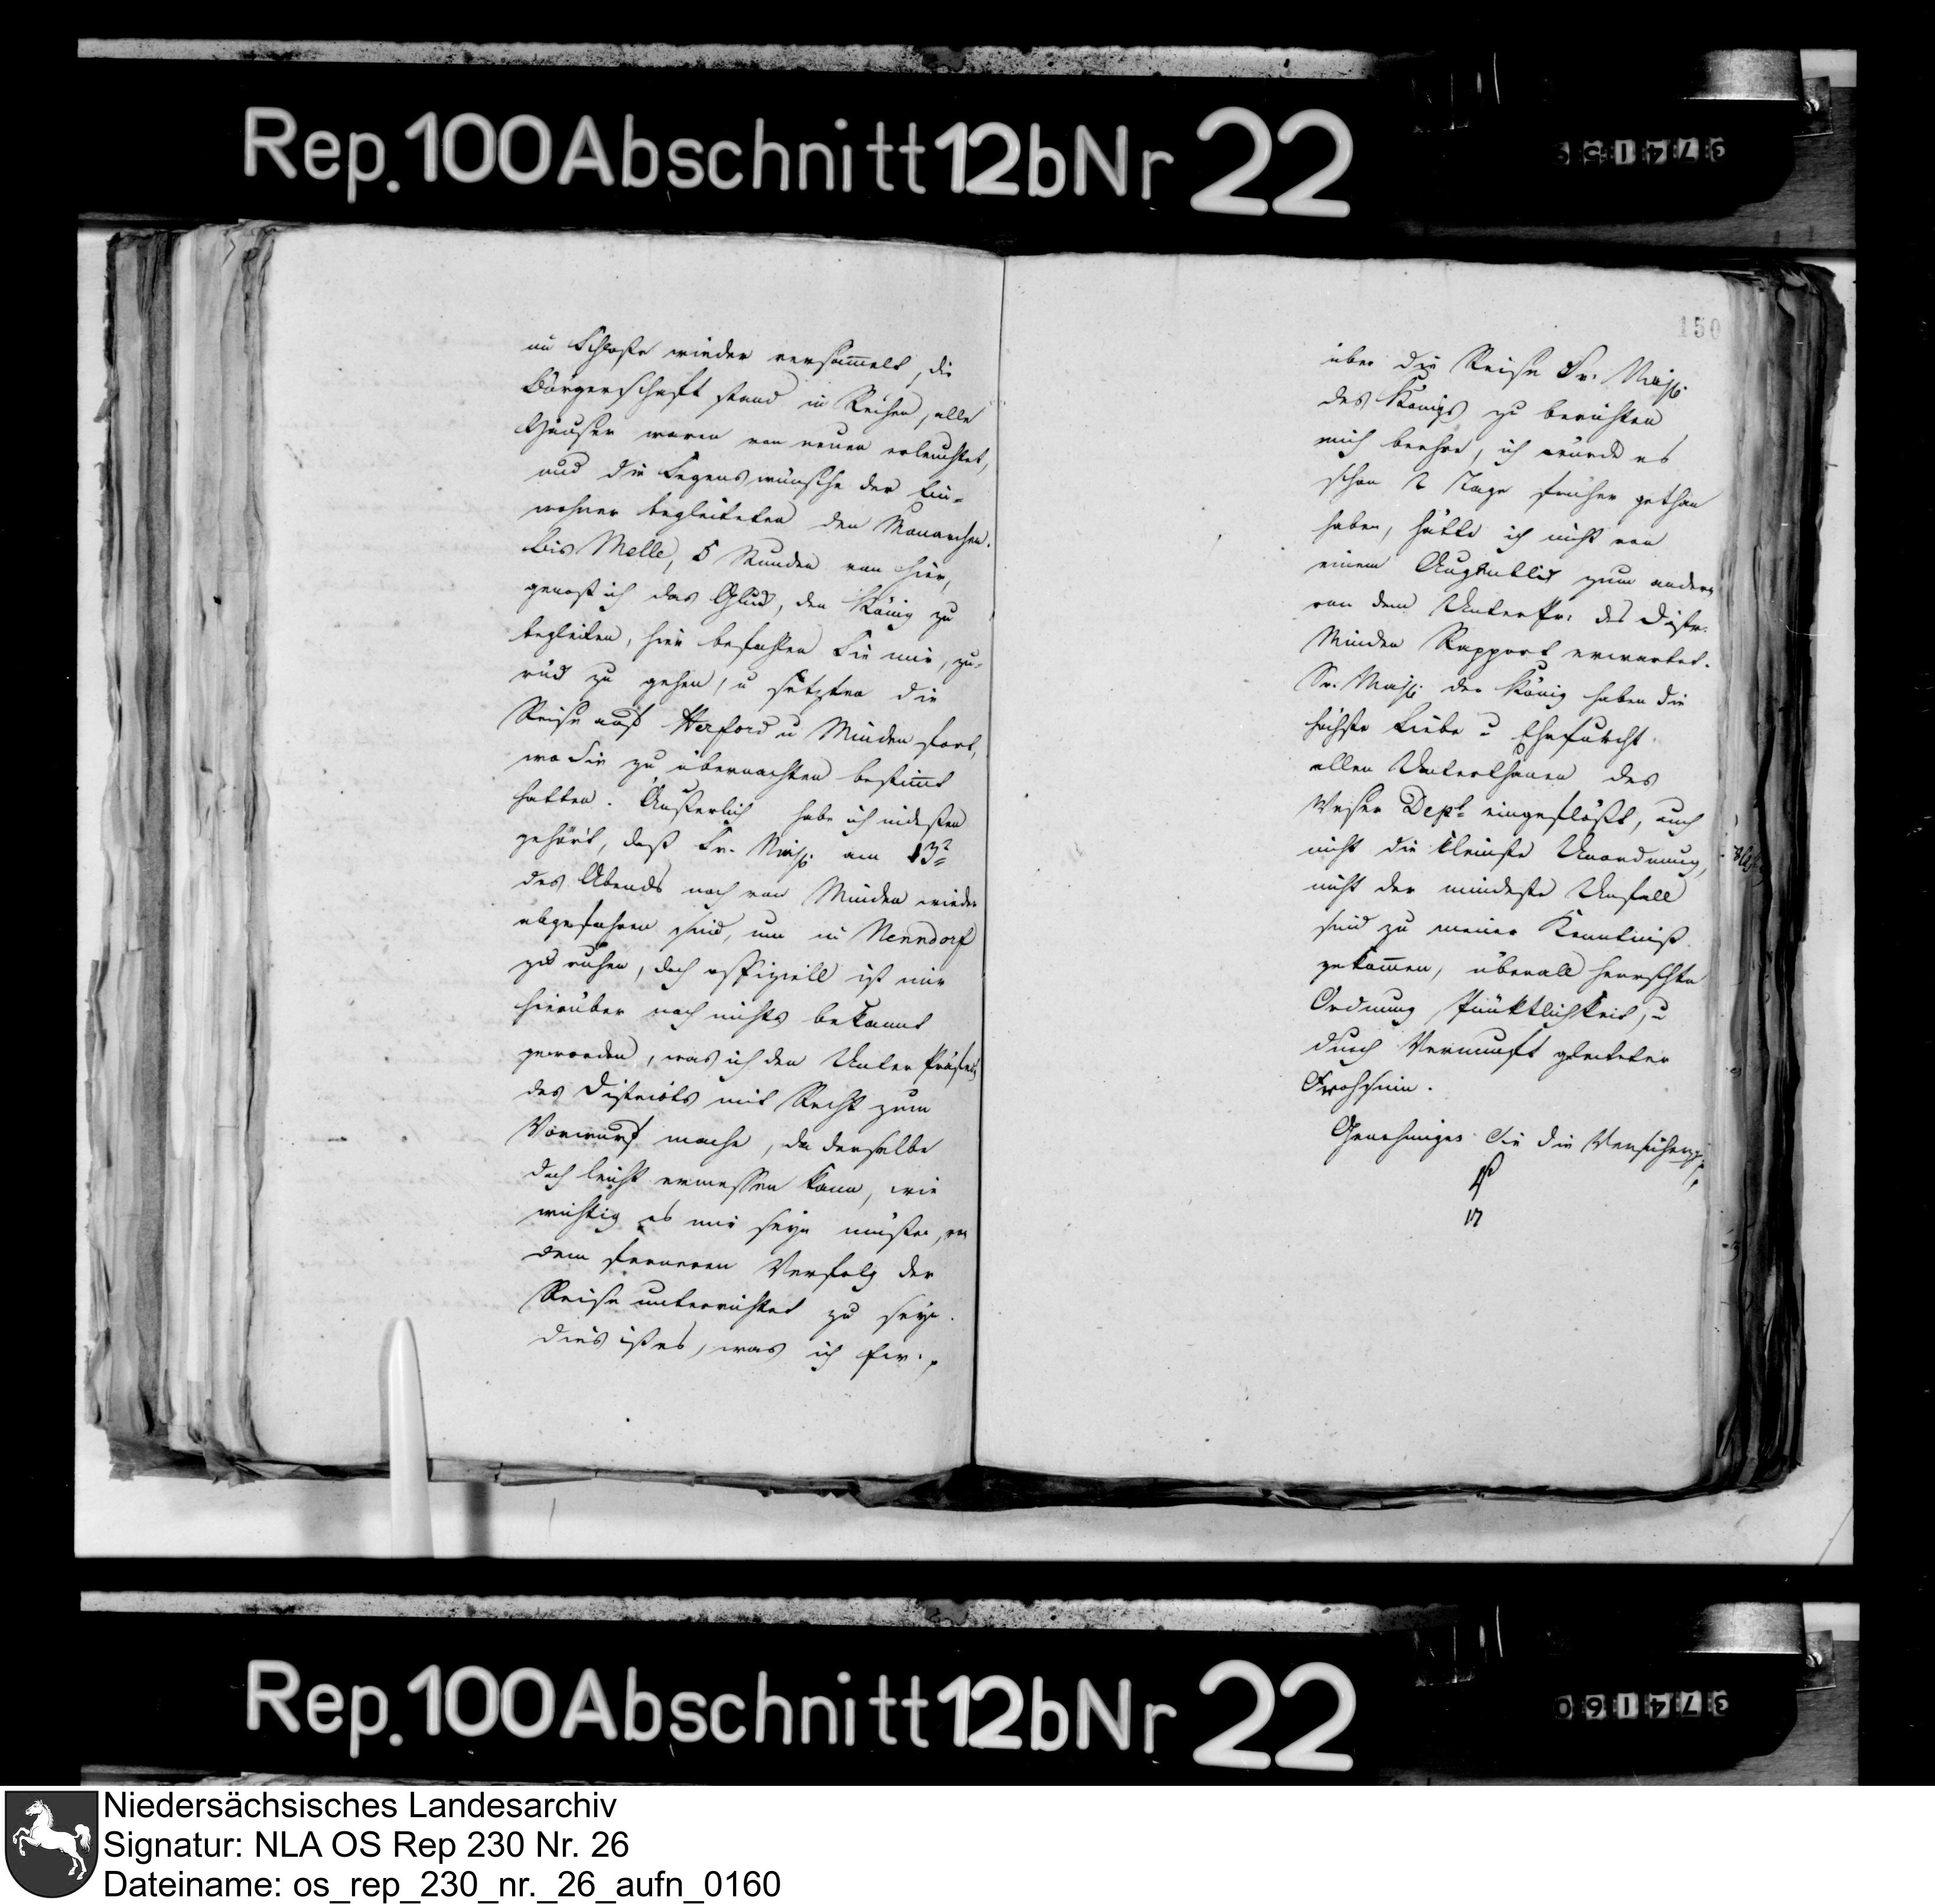 Rep.100 Abschnitt 12b Nr 22
374159
im Schloße wieder versam̅elt, die
Bürgerschaft stand in Reihen, alle
Häuser waren von neuen erleuchtet,
und die Segenswünsche der Ein-
wohner begleiteten den Monarchen.
Bis Melle, 5 Stunden von hier,
genoß ich das Glück, den König zu
begleiten, hier befahlen Sie mir, zu-
rück zu gehen, u setzten die
Reise auf Herford u Minden fort,
wo Sie zu übernachten bestim̅t
hatten. Äußerlich habe ich indeßen
gehört, daß Sr. Maj. am 13t
des Abends noch von Minden wieder
abgefahren sind, um in Nenndorf
zu ruhen, doch offiziell ist mir
hierüber noch nichts bekannt
geworden, was ich den Unter Präfect
des Districts mit Recht zum
Vorwurf mache, da derselbe
doch leicht ermessen kann, wie
wichtig es mir seyn müßte, von
dem ferneren Verfolg der
Reise unterrichtet zu seyn.
Dies ist es, was ich Ew.
150
über die Reise Sr. Maj.
des Königs zu berichten
mich beehre, ich würde es
schon 2 Tage früher gethan
haben, hätte ich nicht von
einem Augenblick zum andern
von dem Unterpr. des Distr.
Minden Rapport erwartet.
Sr. Maj. der König haben die
höchste Liebe u Ehrfurcht
allen Unterthanen des
Weser Dept eingeflößt, auch
nicht die kleinste Unordnung,
nicht der mindeste Unfall
sind zu meiner Kenntniß
gekom̅en, überall herrschte
Ordnung, Pünktlichkeit, u
durch Vernunft geleiteter
Frohsinn.
Genehmigen Sie die Versicherg
Rep.100 Abschnitt 12b Nr 22
374160
Niedersächsisches Landesarchiv
Signatur: NLA OS Rep 230 Nr. 26
Dateiname: os_rep_230_nr._26_aufn_0160